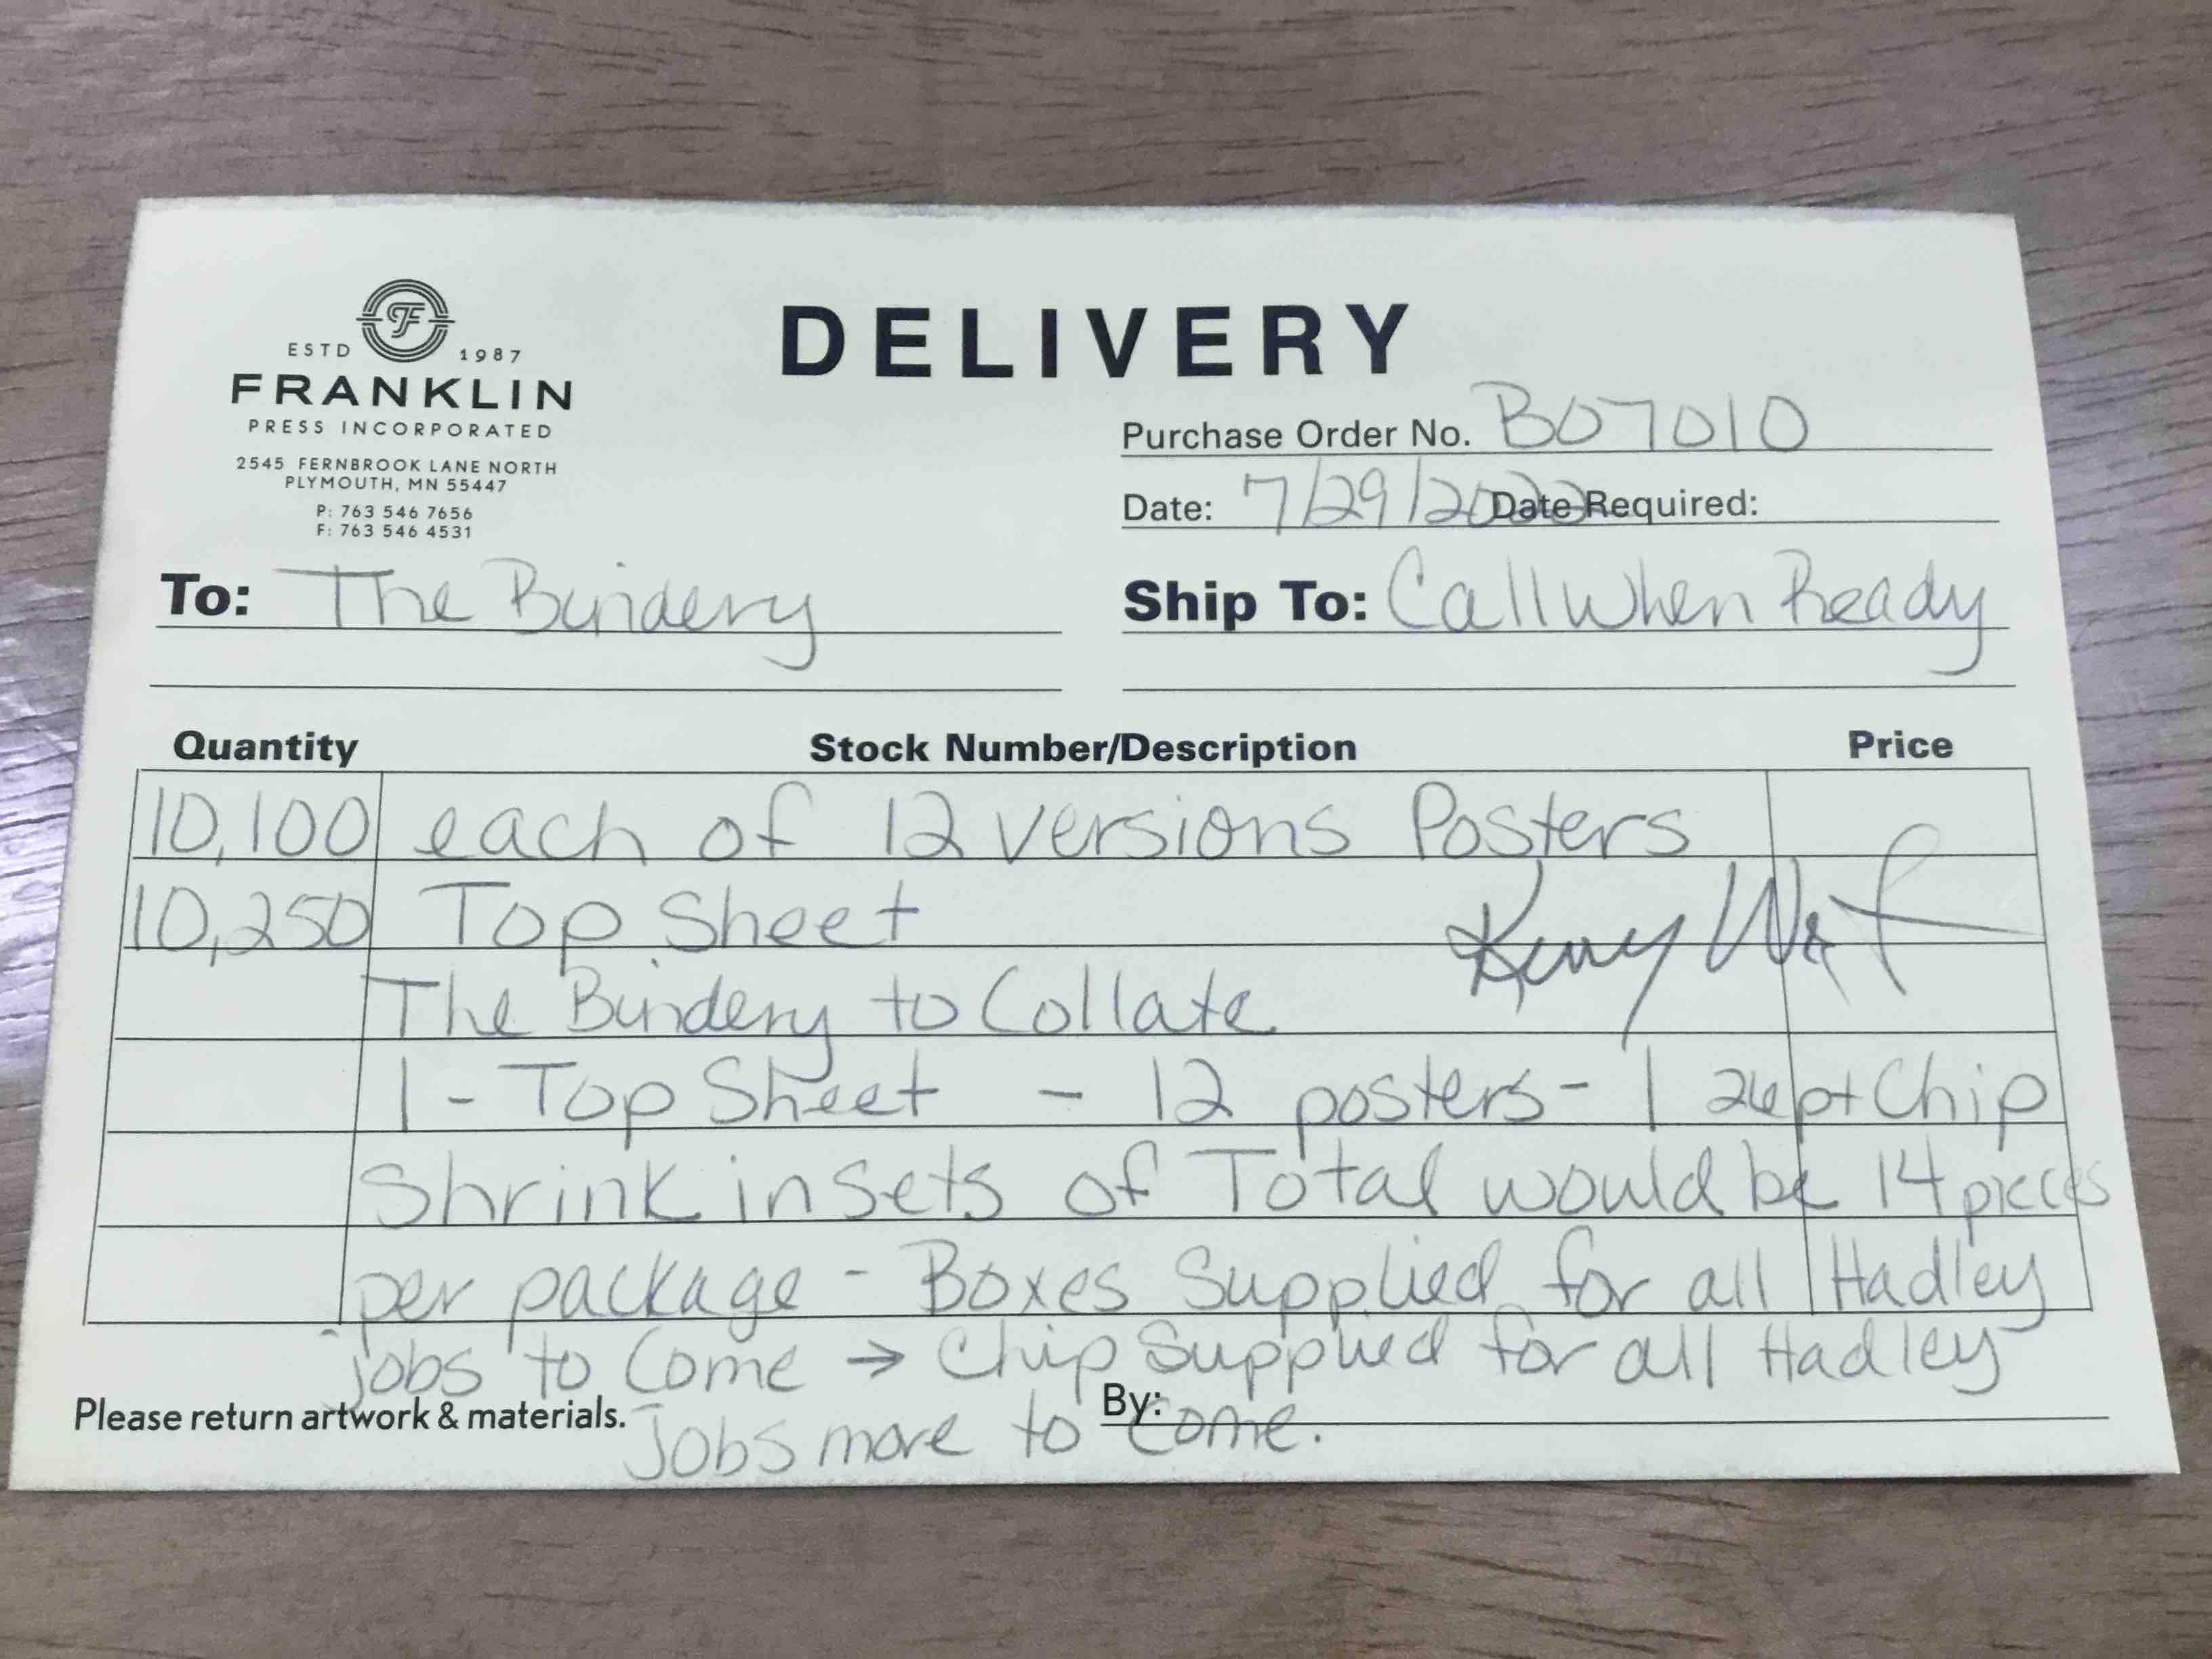 ESTD 1987
FRANKLIN
PRESS INCORPORATED
2545 FERNBROOK LANE NORTH
PLYMOUTH, MN 55447
P: 763 546 7656
F: 763 546 4531
DELIVERY
Purchase Order No. B07010
Date: 7/29/2022 Date Required:
To: The Bindery
Ship To: Call When Ready
Quantity Stock Number/Description Price
10,100 each of 12 versions Posters
10,250 Top Sheet
The Bindery to Collate
1 - Top Sheet - 12 posters - 1 26pt Chip
Shrink in Sets of Total would be 14 pieces
per package - Boxes Supplied for all Hadley
jobs to Come → Chip Supplied for all Hadley
Please return artwork & materials. By:
Jobs more to Come.